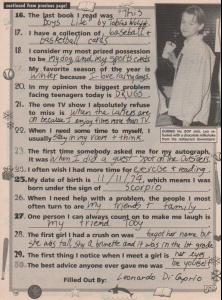 (continued from previous page)
16. The last book I read was "This
Boy's Life" by Tobias Wolff.
17. I have a collection of baseball &
basketball cards
18. I consider my most prized possession
to be my dog and my sports cards
19. My favorite season of the year is
winter because I love rainy days.
20. In my opinion the biggest problem
facing teenagers today is DRUGS.
21. The one TV show I absolutely refuse
to miss is when the Lakers are
on because I enjoy
22. When I need some time to myself, I
usually stay in my room & think.
23. The first time somebody asked me for my autograph,
it was when I did a guest spot on the Outsiders.
24. I often wish I had more time for exercise & reading.
25. My date of birth is 11/11/74, which means I was
born under the sign of Scorpio
26. When I need help with a problem, the people I most
often turn to are my friends & family
27. One person I can always count on to make me laugh is
my friend Toby
28. The first girl I had a crush on was forgot her name but
she was tall, shy & brunette and it was in the 1st grade
29. The first thing I notice when I meet a girl is her eyes
30. The best advice anyone ever gave me was be yourself
Filled Out By: Leonardo DiCaprio